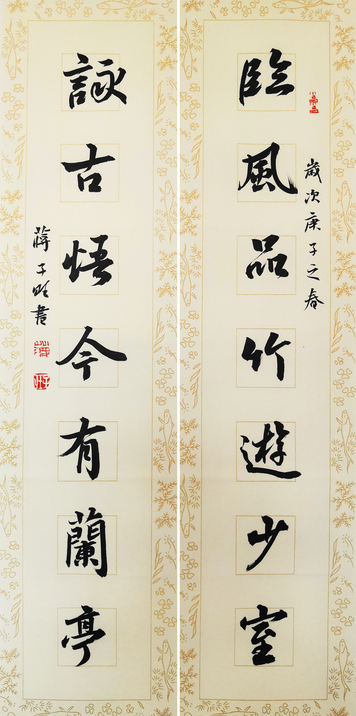 臨風品竹遊少室
歲次庚子之春
詠古悟今有蘭亭
蔣子明書